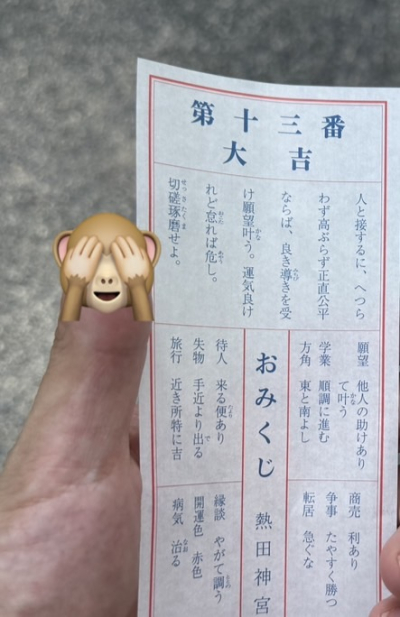 第十三番
大吉
人と接するに、へつら
わず高ぶらず正直公平
ならば、良き導きを受
け願望叶う。運気良け
れど怠れば危し。
切磋琢磨せよ。
願望 他人の助けあり
て叶う
学業 順調に進む
方角 東と南よし
おみくじ 熱田神宮
待人 来る便あり
失物 手近より出る
旅行 近き所特に吉
商売 利あり
争事 たやすく勝つ
転居 急ぐな
縁談 やがて調う
開運色 赤色
病気 治る